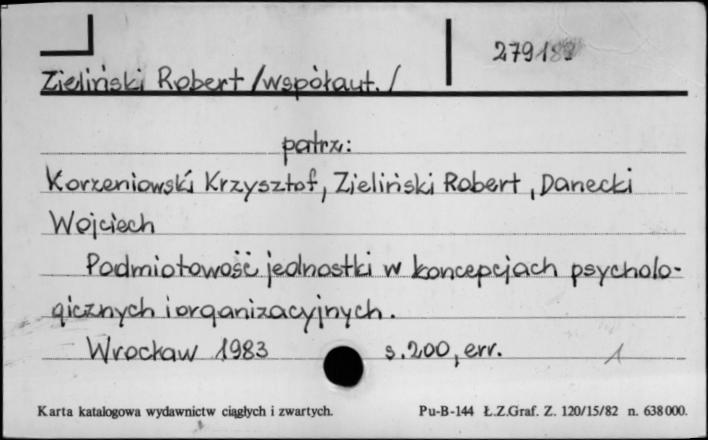 279183
Zieliński Robert /współaut./
patrz:
Korzeniowski Krzysztof, Zieliński Robert, Danecki
Wojciech
Podmiotowość jednostki w koncepcjach psycholo-
gicznych i organizacyjnych.
Wrocław 1983 s. 200, err.
1
Karta katalogowa wydawnictw ciągłych i zwartych. Pu-B-144 Ł.Z.Graf. Z. 120/15/82 n. 638000.